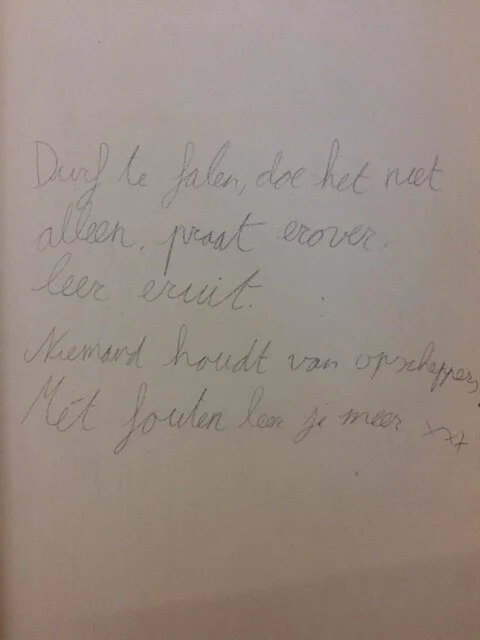 Durf te falen, doe het niet
alleen, praat erover,
leer eruit.
Niemand houdt van opscheppers,
Mét fouten leer je meer xxx